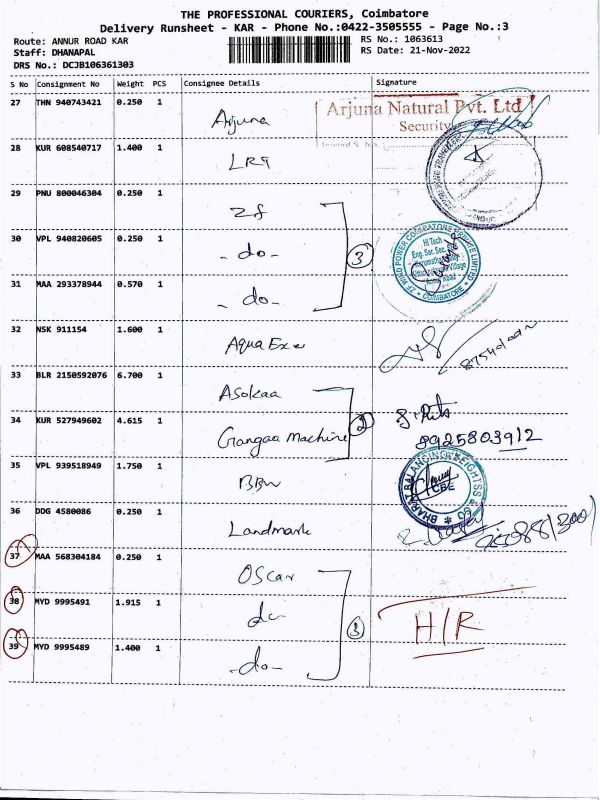 THE PROFESSIONAL COURIERS, Coimbatore
Delivery Runsheet - KAR - Phone No.:0422-3505555 - Page No.:3
Route: ANNUR ROAD KAR RS No.: 1063613
Staff: DHANAPAL RS Date: 21-Nov-2022
DRS No.: DCJB106361303
S No Consignment No Weight PCS Consignee Details Signature
27 THN 940743421 0.250 1 Arjuna
Arjuna Natural Pvt. Ltd
Security
28 KUR 608540717 1.400 1 LRT
29 PNU 800046304 0.250 1 ZF
30 VPL 940820605 0.250 1 - do - 3
ZF WIND POWER COIMBATORE PRIVATE LIMITED
Hi Tech
Eng. Ser. Sec.
* COIMBATORE *
31 MAA 293378944 0.570 1 - do -
32 NSK 911154 1.600 1 Aqua Exe
33 BLR 2150592076 6.700 1 Asokaa
34 KUR 527949602 4.615 1 Gangaa Machine 2
8925803912
35 VPL 939518949 1.750 1 BBW
BHARAT BALANCING WEIGHTSS & CO
CBE
36 DDG 4580086 0.250 1 Landmark
37 MAA 568304184 0.250 1 Oscar
38 MYD 9995491 1.915 1 do 3 H/R
39 MYD 9995489 1.400 1 - do -